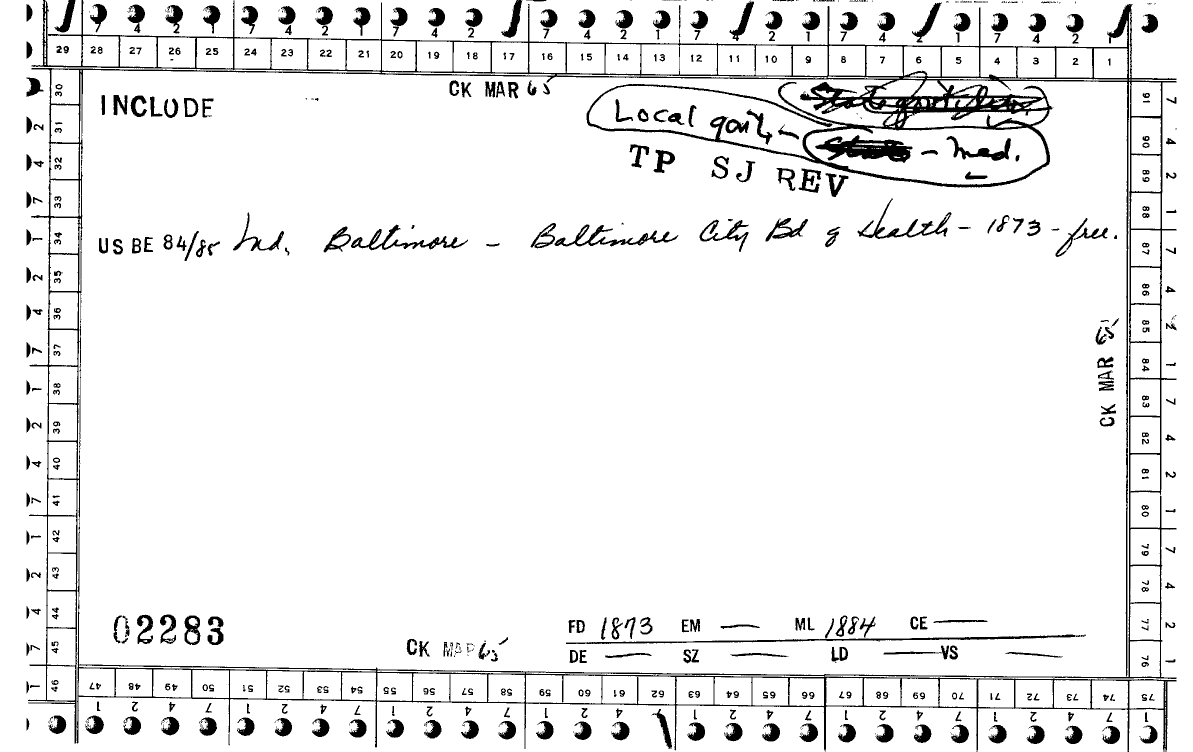 7 4 2 1 7 4 2 1 7 4 2 7 4 2 1 7 4 2 1 7 4 2 1 7 4 2 1
29 28 27 26 25 24 23 22 21 20 19 18 17 16 15 14 13 12 11 10 9 8 7 6 5 4 3 2 1
CK MAR 65
INCLUDE
Local govt, -
- med.
TP SJ REV
US BE 84/85 Md, Baltimore - Baltimore City Bd of Health - 1873 - free.
CK MAR 65
02283
FD 1873 EM — ML 1884 CE —
CK MAR 65
DE — SZ — LD — VS
30 31 32 33 34 35 36 37 38 39 40 41 42 43 44 45 46
2 4 7 1 2 4 7 1 2 4 7 1 2 4 7 1
91 90 89 88 87 86 85 84 83 82 81 80 79 78 77 76
7 4 2 1 7 4 2 1 7 4 2 1 7 4 2 1
47 48 49 50 51 52 53 54 55 56 57 58 59 60 61 62 63 64 65 66 67 68 69 70 71 72 73 74 75
1 2 4 7 1 2 4 7 1 2 4 7 1 2 4 1 2 4 7 1 2 4 7 1 2 4 7 1